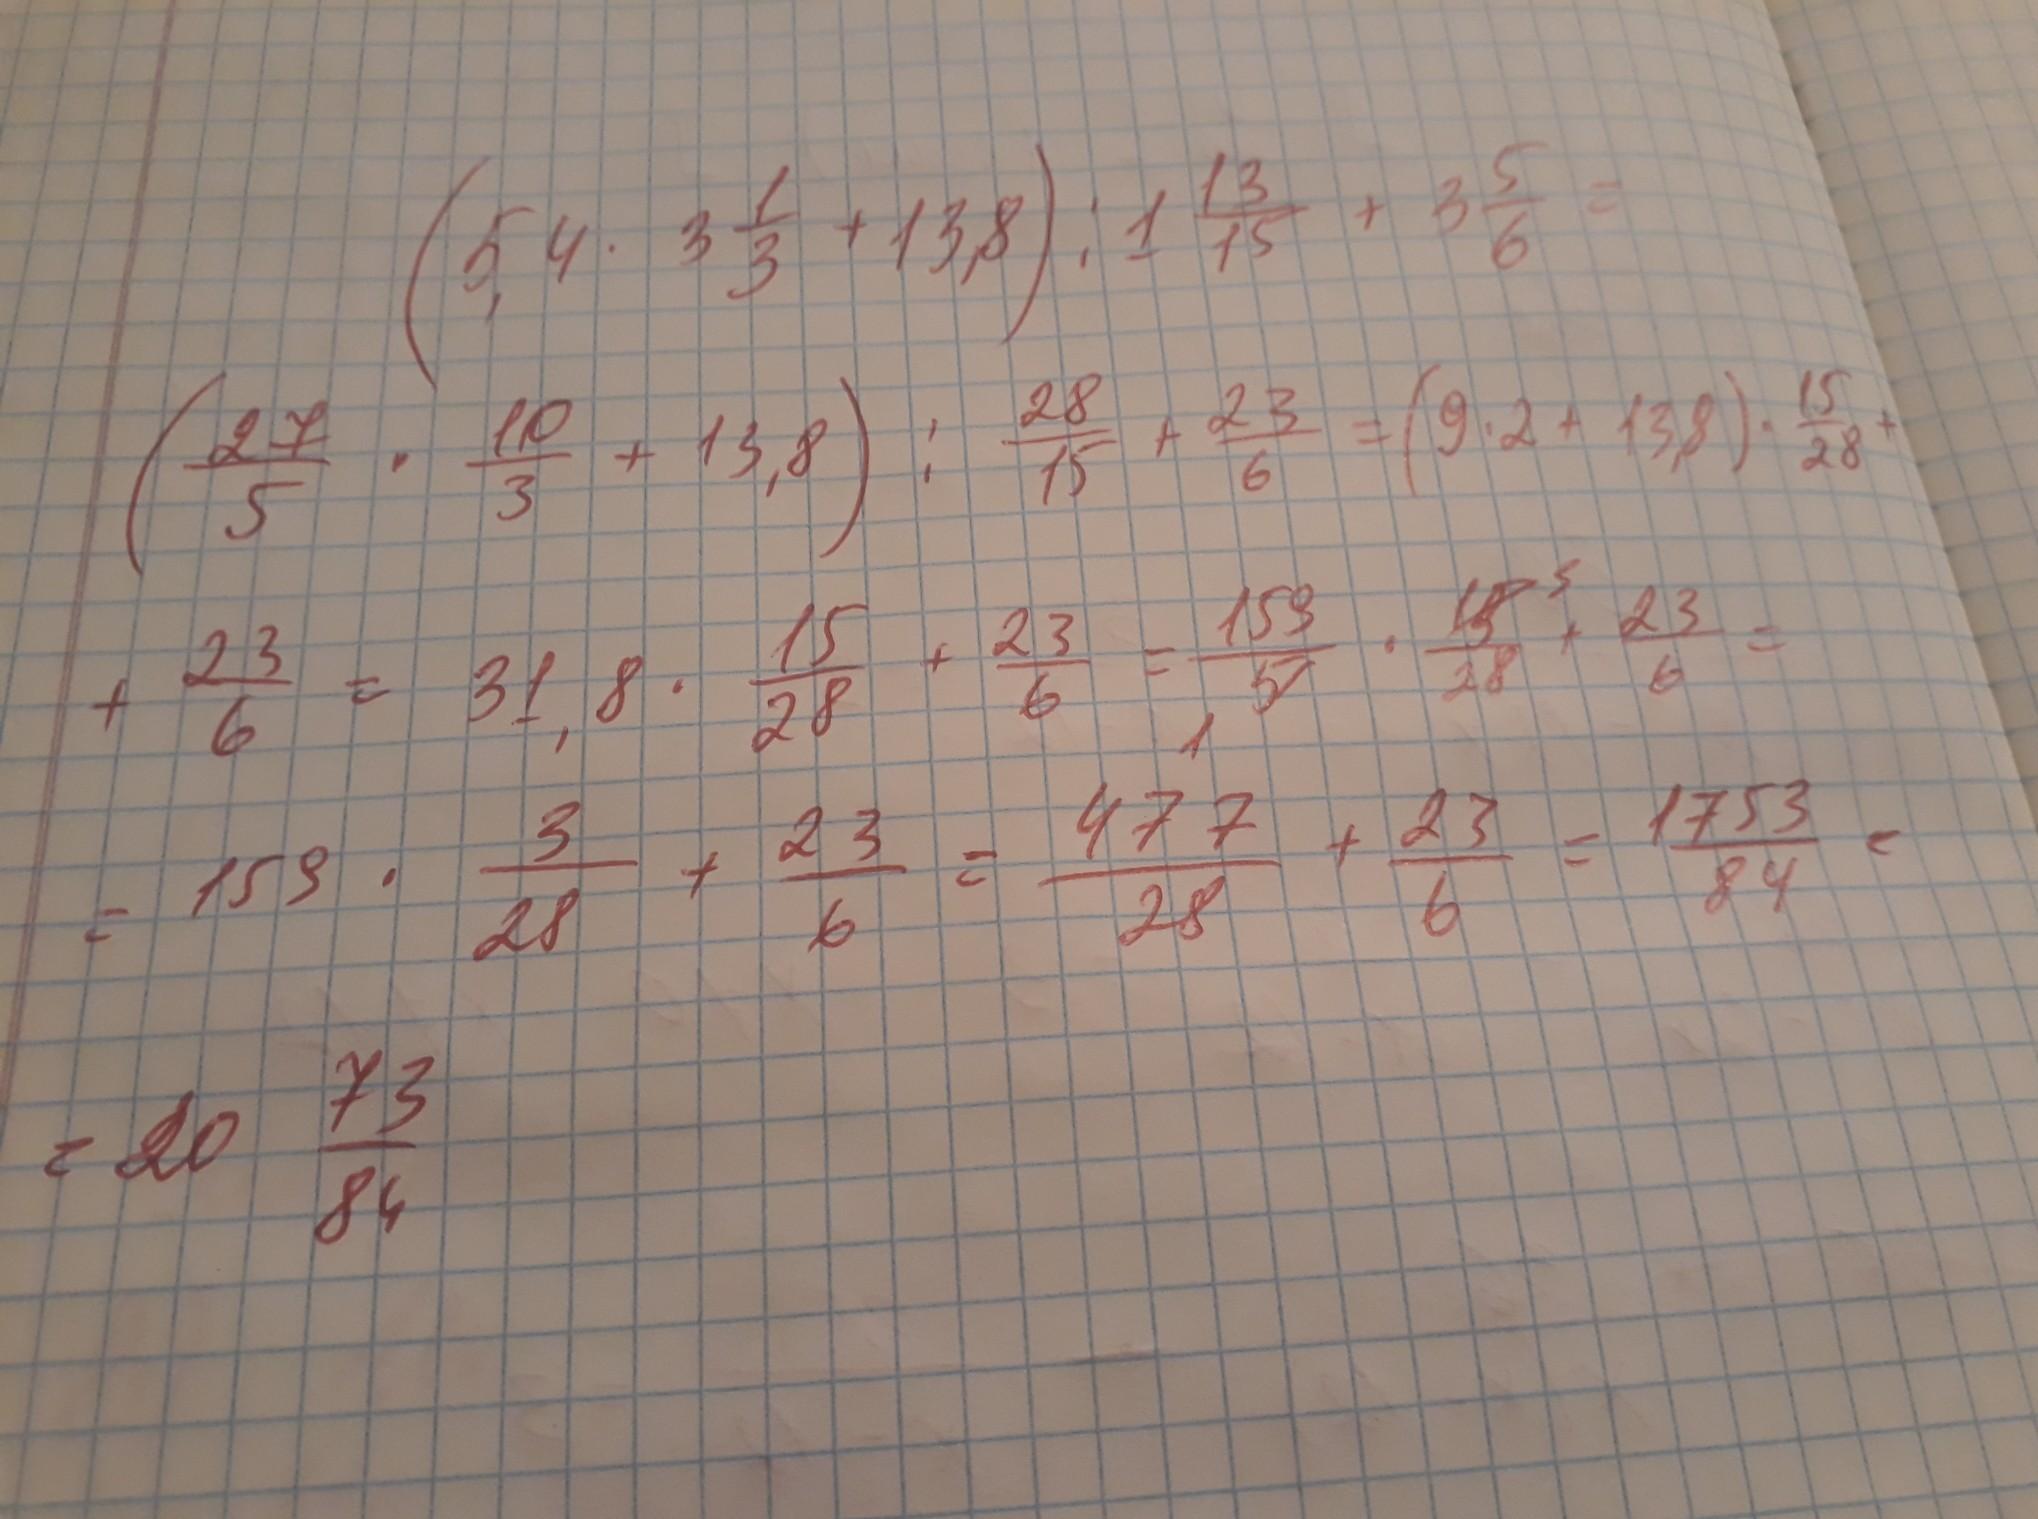 (5,4 · 3 1/3 + 13,8) : 1 13/15 + 3 5/6 =
(27/5 · 10/3 + 13,8) : 28/15 + 23/6 = (9·2 + 13,8) · 15/28 +
+ 23/6 = 31,8 · 15/28 + 23/6 = 159/5 1 · 15/28 3 + 23/6 =
= 159 · 3/28 + 23/6 = 477/28 + 23/6 = 1753/84 =
= 20 73/84